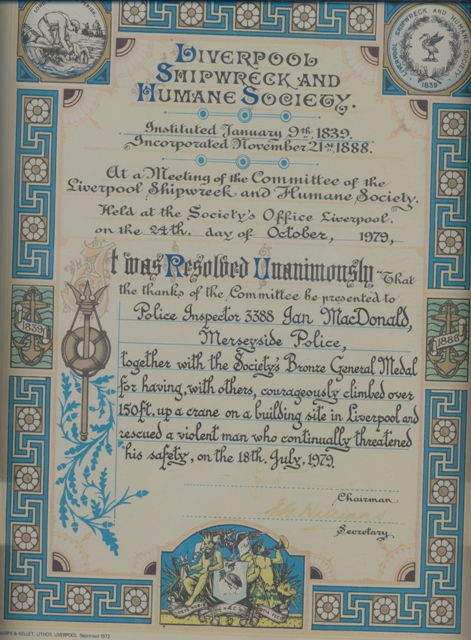 LIVERPOOL
SHIPWRECK AND
HUMANE SOCIETY.
Instituted January 9th. 1839.
Incorporated November 21st. 1888.
At a Meeting of the Committee of the
Liverpool Shipwreck and Humane Society.
Held at the Society's Office Liverpool.
on the 24th. day of October, 1979,
It was Resolved Unanimously "That
the thanks of the Committee be presented to
Police Inspector 3388 Ian MacDonald,
Merseyside Police,
together with the Society's Bronze General Medal
for having, with others, courageously climbed over
150ft. up a crane on a building site in Liverpool and
rescued a violent man who continually threatened
his safety, on the 18th. July, 1979.
Chairman
Secretary
1839
1888
LIVERPOOL SHIPWRECK AND HUMANE SOCIETY
1839
KELLET. LITHOS LIVERPOOL. Reprinted 1973